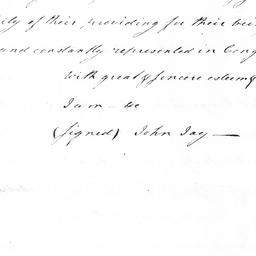 of their providing for their being
and constantly represented in Cong
With great & sincere esteem &
I am - &c
(signed) John Jay —